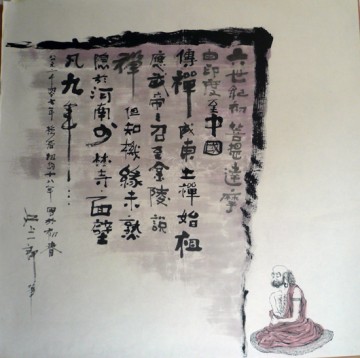 六世紀初菩提達摩
由印度至中國
傳禪成東土禪始祖
應武帝之召至金陵說
禪但知機緣未熟
隱於河南少林寺面壁
凡九年……